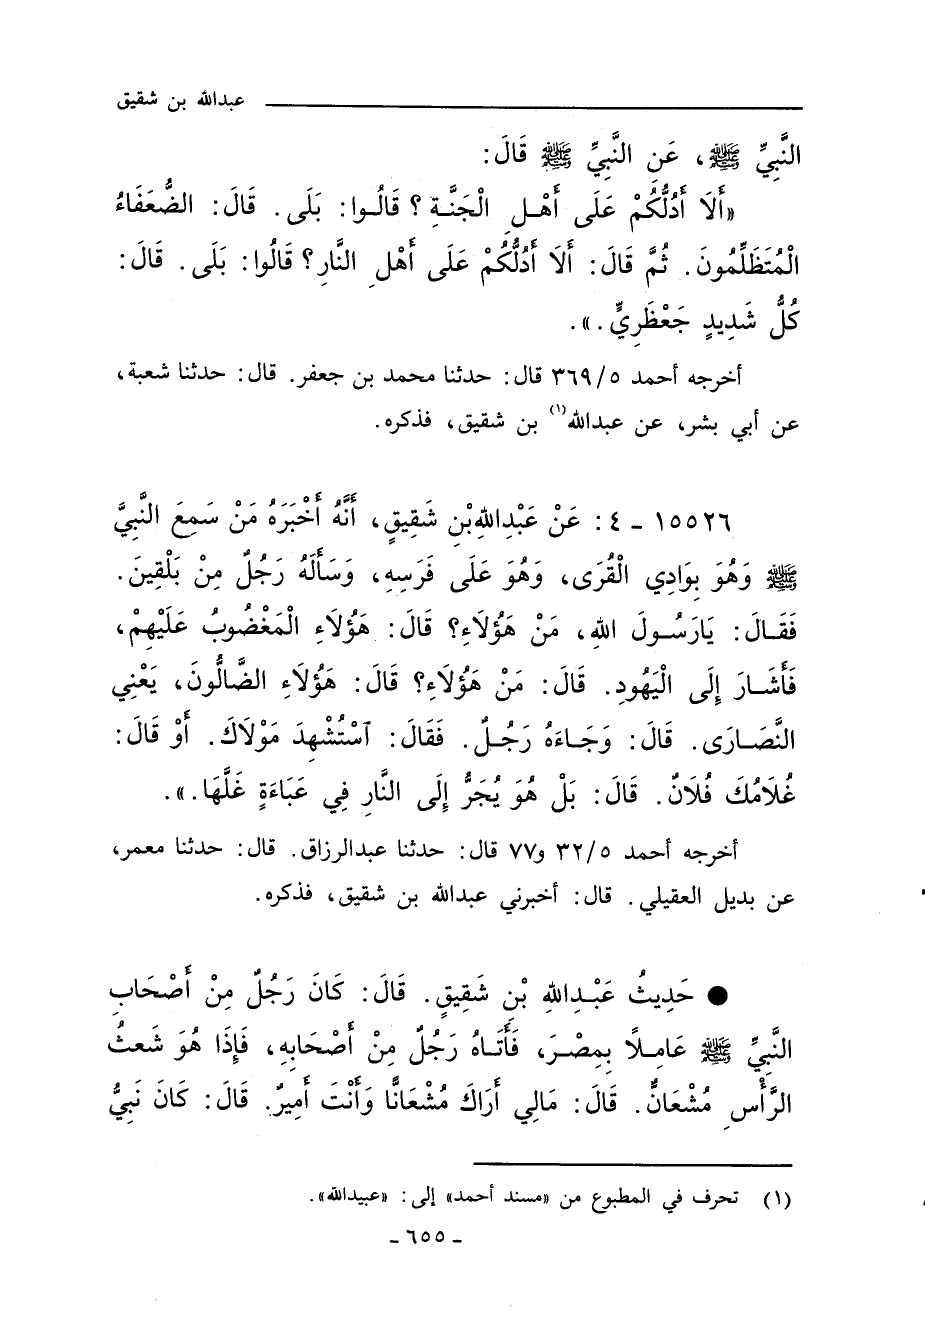 عبدالله بن شقيق
النَّبِيِّ ﷺ، عَنِ النَّبِيِّ ﷺ قَالَ:
«أَلَا أَدُلُّكُمْ عَلَى أَهْلِ الْجَنَّةِ؟ قَالُوا: بَلَى. قَالَ: الضُّعَفَاءُ
الْمُتَظَلِّمُونَ. ثُمَّ قَالَ: أَلَا أَدُلُّكُمْ عَلَى أَهْلِ النَّارِ؟ قَالُوا: بَلَى. قَالَ:
كُلُّ شَدِيدٍ جَعْظَرِيٍّ.».
أخرجه أحمد ٣٦٩/٥ قال: حدثنا محمد بن جعفر. قال: حدثنا شعبة،
عن أبي بشر، عن عبدالله(١) بن شقيق، فذكره.
١٥٥٢٦ - ٤: عَنْ عَبْدِاللهِ بْنِ شَقِيقٍ، أَنَّهُ أَخْبَرَهُ مَنْ سَمِعَ النَّبِيَّ
ﷺ وَهُوَ بِوَادِي الْقُرَى، وَهُوَ عَلَى فَرَسِهِ، وَسَأَلَهُ رَجُلٌ مِنْ بَلْقِينَ.
فَقَالَ: يَارَسُولَ اللهِ، مَنْ هَؤُلَاءِ؟ قَالَ: هَؤُلَاءِ الْمَغْضُوبُ عَلَيْهِمْ،
فَأَشَارَ إِلَى الْيَهُودِ. قَالَ: مَنْ هَؤُلَاءِ؟ قَالَ: هَؤُلَاءِ الضَّالُّونَ، يَعْنِي
النَّصَارَى. قَالَ: وَجَاءَهُ رَجُلٌ. فَقَالَ: ٱسْتُشْهِدَ مَوْلَاكَ. أَوْ قَالَ:
غُلَامُكَ فُلَانٌ. قَالَ: بَلْ هُوَ يُجَرُّ إِلَى النَّارِ فِي عَبَاءَةٍ غَلَّهَا.».
أخرجه أحمد ٣٢/٥ و٧٧ قال: حدثنا عبدالرزاق. قال: حدثنا معمر،
عن بديل العقيلي. قال: أخبرني عبدالله بن شقيق، فذكره.
● حَدِيثُ عَبْدِاللهِ بْنِ شَقِيقٍ. قَالَ: كَانَ رَجُلٌ مِنْ أَصْحَابِ
النَّبِيِّ ﷺ عَامِلًا بِمِصْرَ، فَأَتَاهُ رَجُلٌ مِنْ أَصْحَابِهِ، فَإِذَا هُوَ شَعثُ
الرَّأْسِ مُشْعَانٌّ. قَالَ: مَالِي أَرَاكَ مُشْعَانًّا وَأَنْتَ أَمِيرٌ. قَالَ: كَانَ نَبِيُّ
(١) تحرف في المطبوع من «مسند أحمد» إلى: «عبيدالله».
- ٦٥٥ -